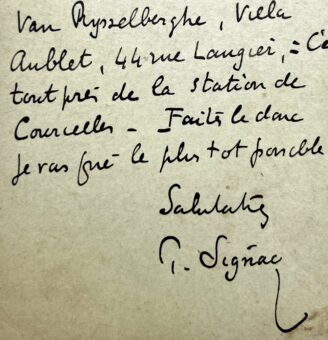 Van Rysselberghe, Villa
Aublet, 44 rue Laugier, = C'e
tout près de la station de
Courcelles - Faites le donc
le plus tot possible
Salutations
P. Signac